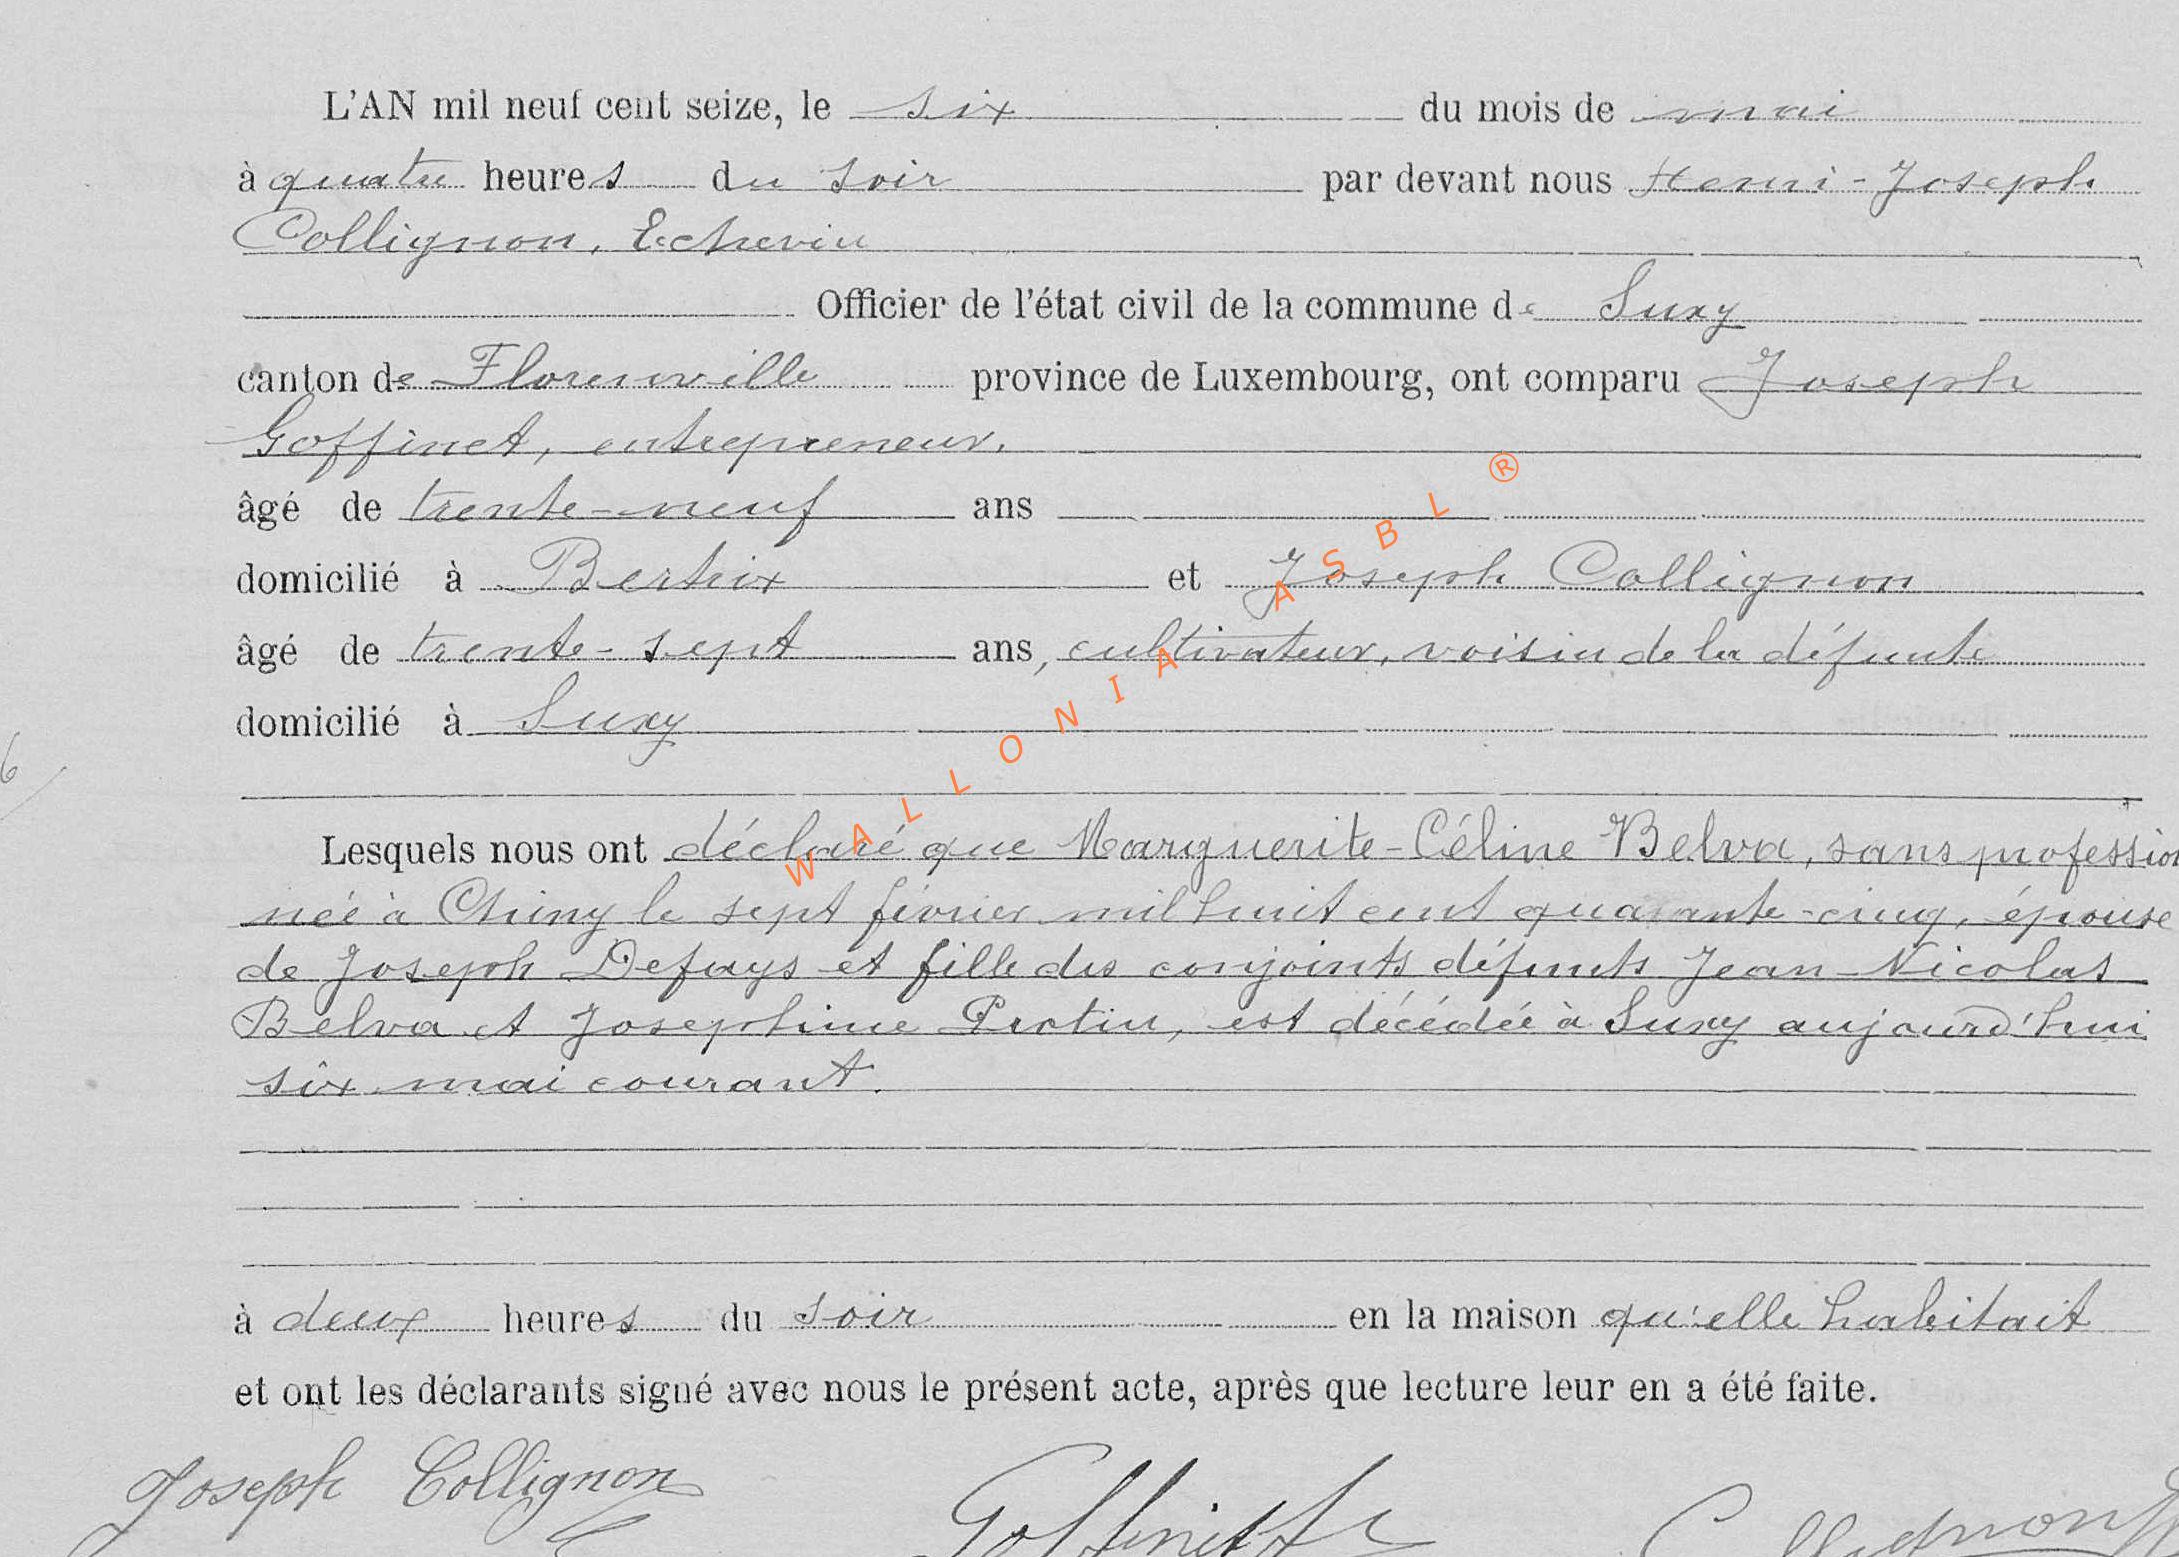 L'AN mil neuf cent seize, le six du mois de mai
à quatre heures du soir par devant nous Henri-Joseph
Collignon, Echevin
Officier de l'état civil de la commune de Suxy
canton de Florenville province de Luxembourg, ont comparu Joseph
Goffinet, entrepreneur,
âgé de trente-neuf ans
domicilié à Bertrix et Joseph Collignon
âgé de trente-sept ans, cultivateur, voisin de la défunte
domicilié à Suxy
6
Lesquels nous ont déclaré que Marguerite-Céline Belva, sans profession
née à Chiny le sept février mil huit cent quarante-cinq, épouse
de Joseph Defays et fille des conjoints défunts Jean-Nicolas
Belva et Josephine Protin, est décédée à Suxy aujourd'hui
six mai courant.
à deux heures du soir en la maison qu'elle habitait
et ont les déclarants signé avec nous le présent acte, après que lecture leur en a été faite.
Joseph Collignon Goffinet Collignon
WALLONIA ASBL ®